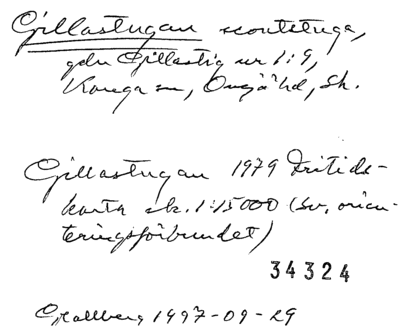 Gillastugan scoutstuga,
gdn Gillastig nr 1:9,
Konga sn, Onsjö hd, Sk.
Gillastugan 1979 Fritids-
karta sk. 1:15000 (Sv. orien-
teringsförbundet)
34324
GHallberg 1997-09-29